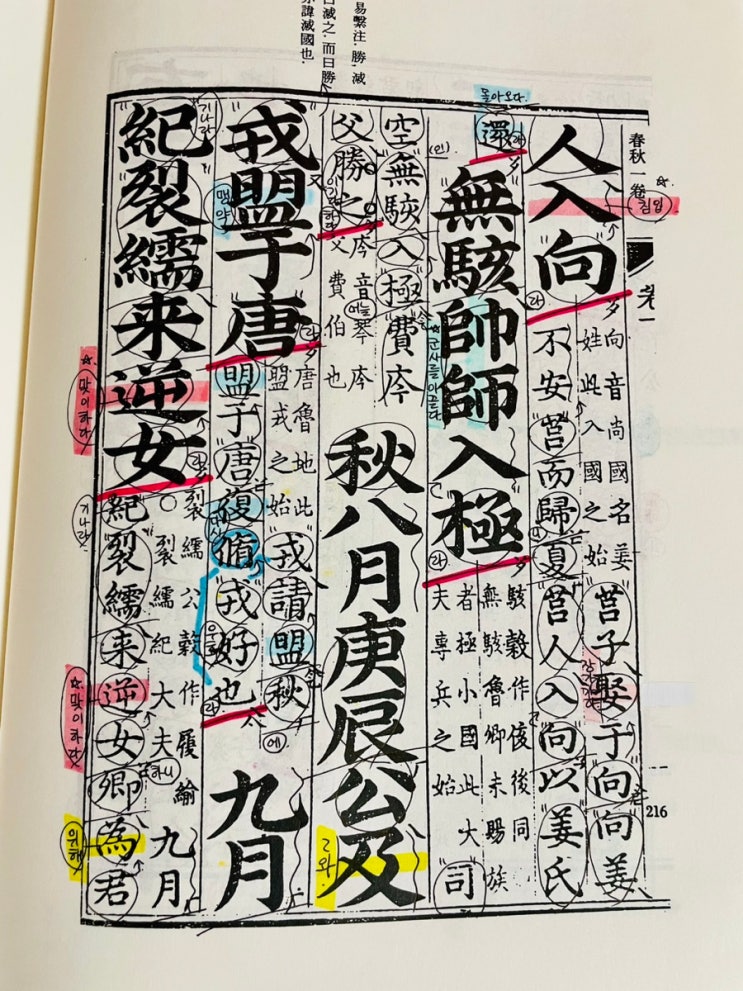 易繫注. 勝, 滅
滅之. 而曰勝
諱滅國也.
春秋一卷
卷一
人入向
침입
라
向音尚國名姜
姓此入國之始
莒子娶于向向姜
不安莒而歸夏莒人入向以姜氏
몰아오다.
還
라
無駭帥師入極
군사를 이끌다
라
駭穀作侅後同
無駭魯卿未賜族
者極小國此大
夫專兵之始
司
空無駭入極費庈
父勝之
이기다
庈音琴庈
父費伯也
秋八月庚辰公及
와
戎盟于唐
맹약
라
唐魯地此
盟戎之始
戎請盟秋
에
盟于唐復脩戎好也
라
九月
紀裂繻来逆女
기나라
맞이하다
라
裂繻公穀作履緰
裂繻紀大夫
하니
九月
紀裂繻来逆女卿為君
기나라
맞이하다
위해
216